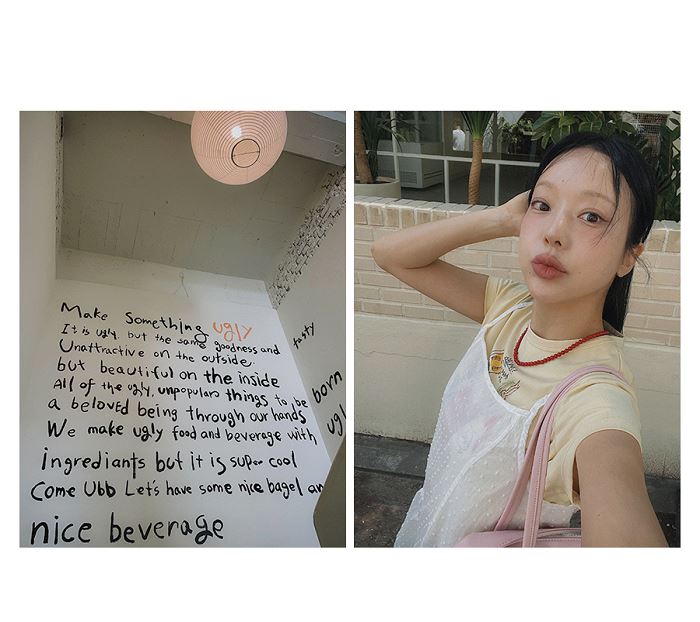 Make Something ugly
It is ugly. but the same goodness and
Unattractive on the outside.
but beautiful on the inside
All of the ugly, unpopular things to be
a beloved being through our hands
We make ugly food and beverage with
ingrediants but it is super cool
Come Ubb Let's have some nice bagel an
nice beverage
tasty
born
ugl